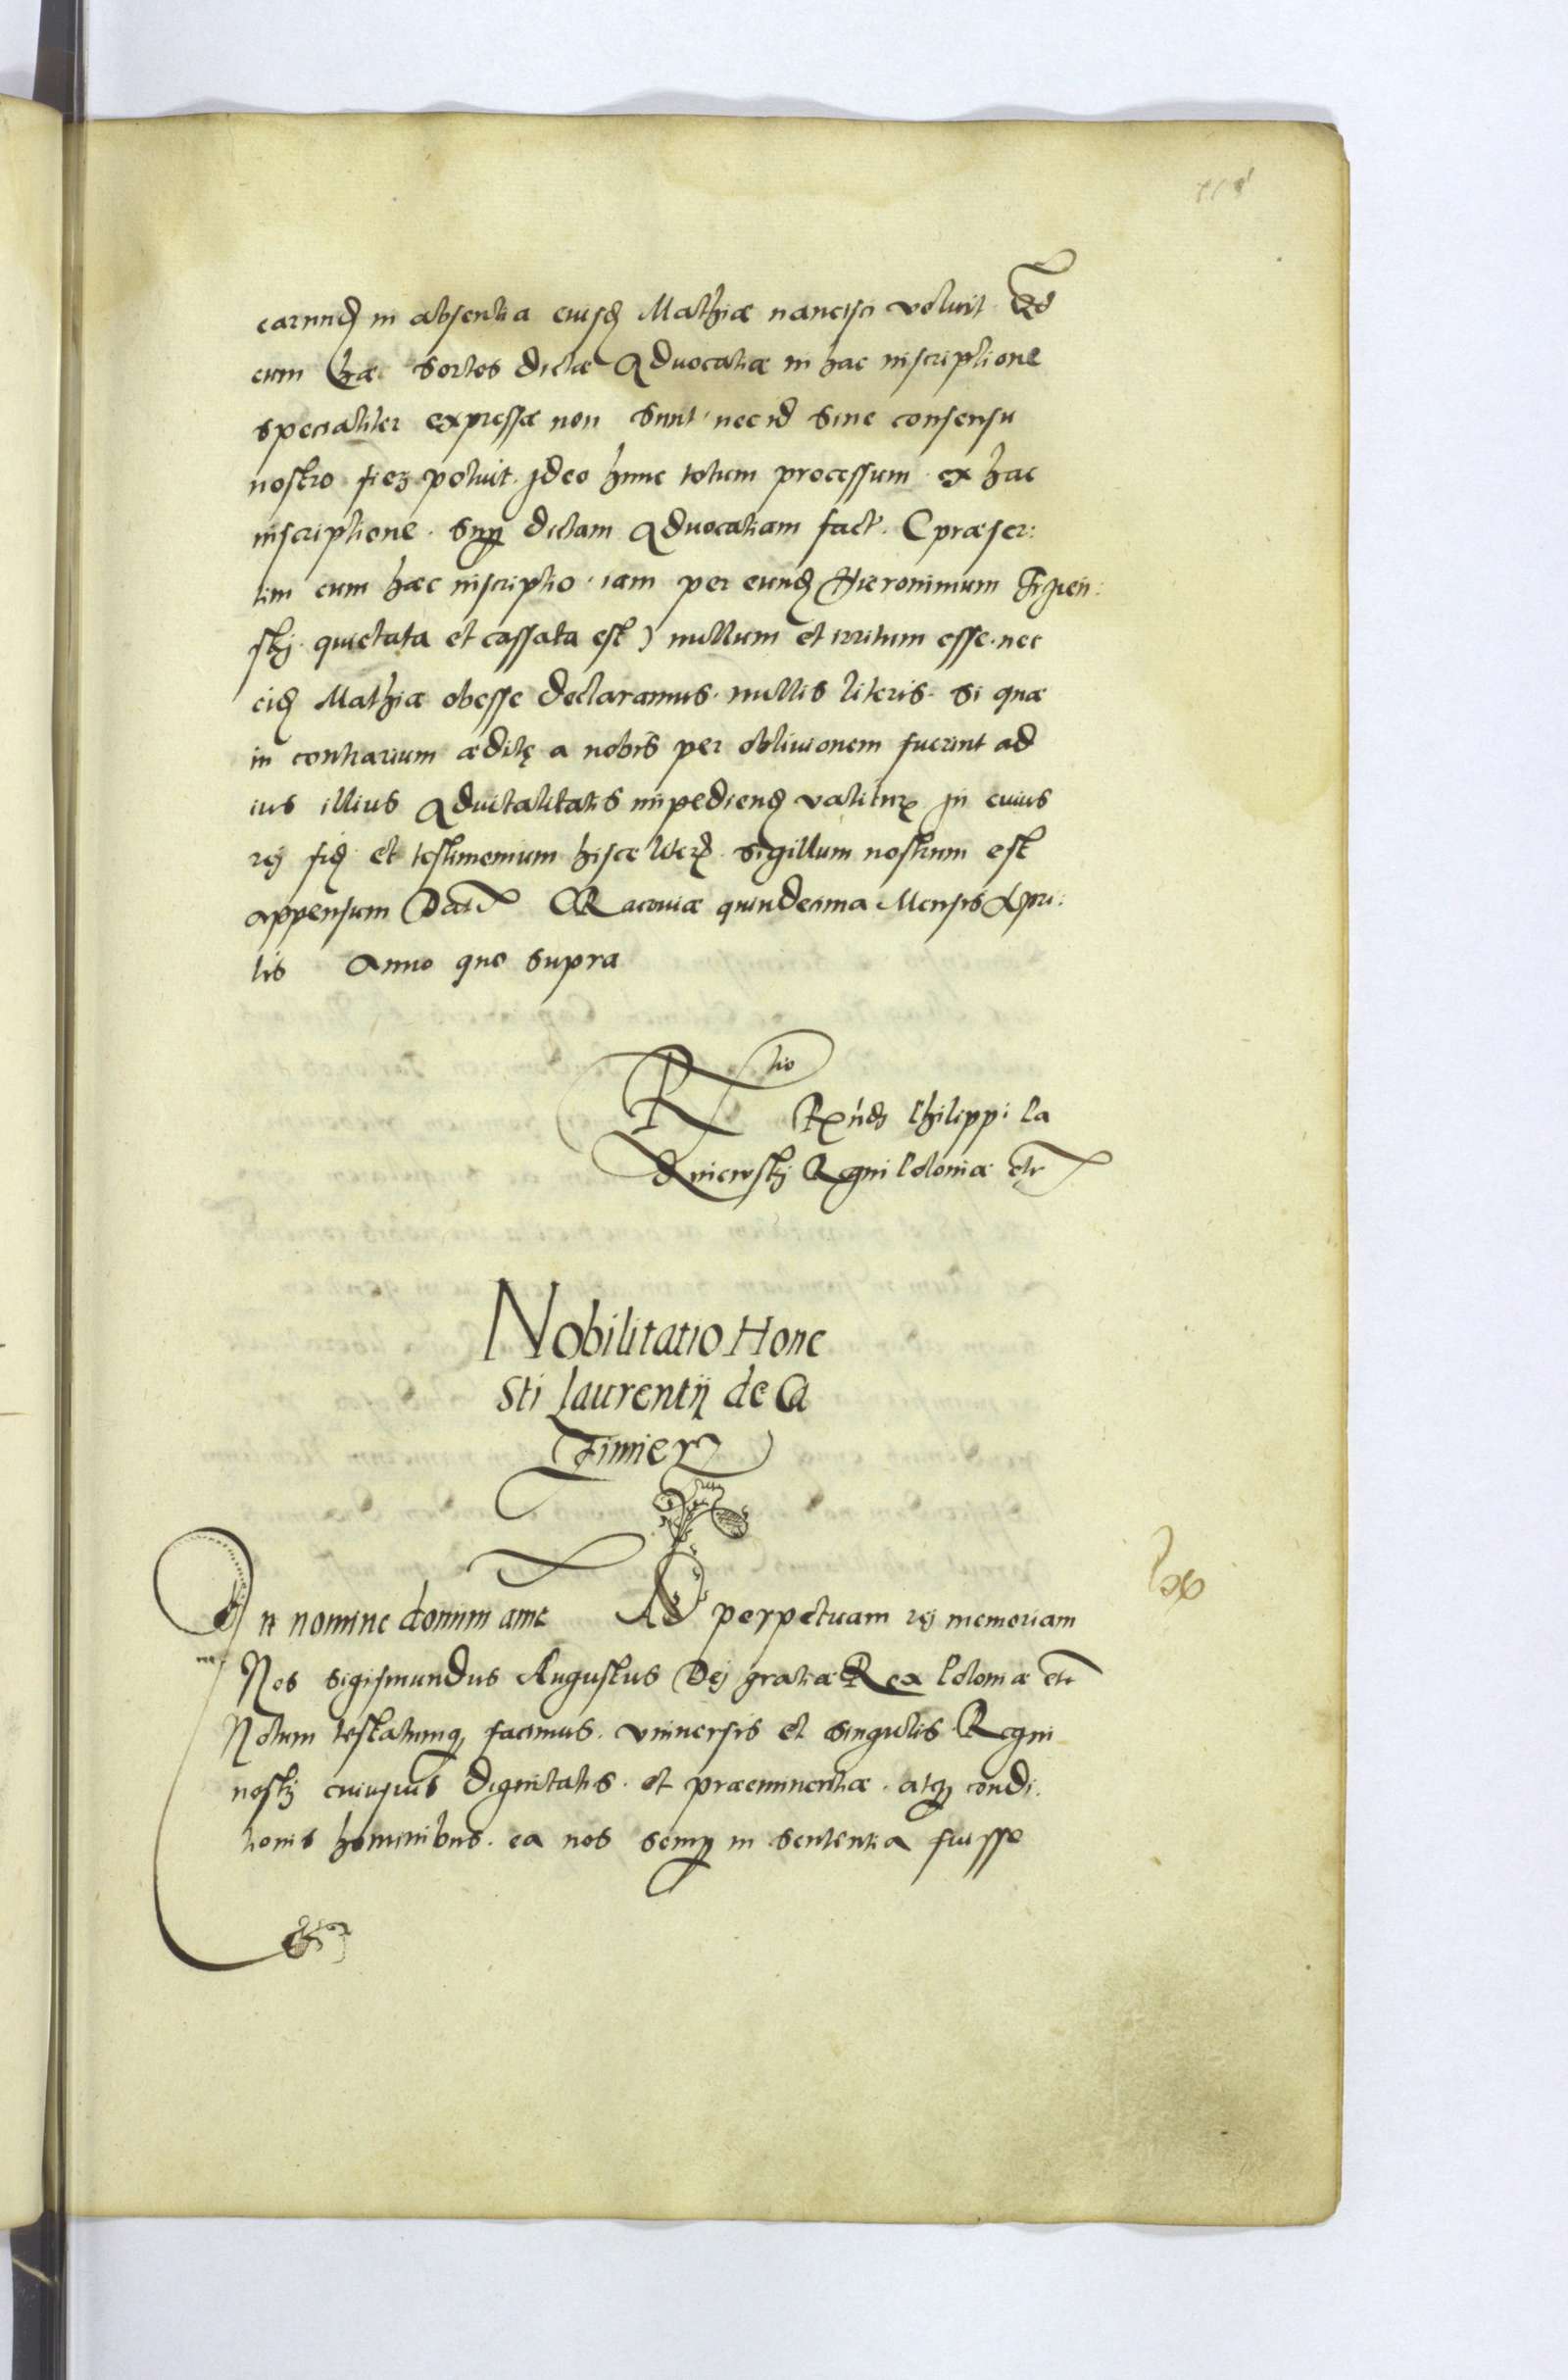 earund in absentia eiusd Mathiæ nancisci voluit Qd
cum hæ sortes dictæ Advocatiæ in hac inscriptione
specialiter expressæ non sunt, nec id sine consensu
nostro fieri potuit. Ideo hunc totum processum ex hac
inscriptione. Sup dictam Advocatiam fact. (præser:
tim cum hæc inscriptio iam per eund Hieronimum
skj quietata et cassata est) nullum et irritum esse. nec
eid Mathiæ obesse declaramus. nullis literis. si quæ
in contrarium æditę a nobis per oblivionem fuerint ad
ius illius Advitalitatis impediend valitur. In cuius
rej fid et testimonium hisce literis sigillum nostrum est
appensum Dat Cracoviæ quindecima Mensis Apri:
lis Anno quo supra
Rtio
Rndi Philippi Pa
dniewskj Regni Poloniæ etc
Nobilitatio Hone
sti Laurentij de Ca
zimierz
In nomine domini ame Ad perpetuam rej memoriam
Nos Sigismundus Augustus Dej gratia Rex Poloniæ etc
Notum testatumq facimus. universis et singulis Regni
nostrj cuiusvis dignitatis. et præeminentiæ. atq condi.
tionis hominibus. ea nos semp in sententia fuisse